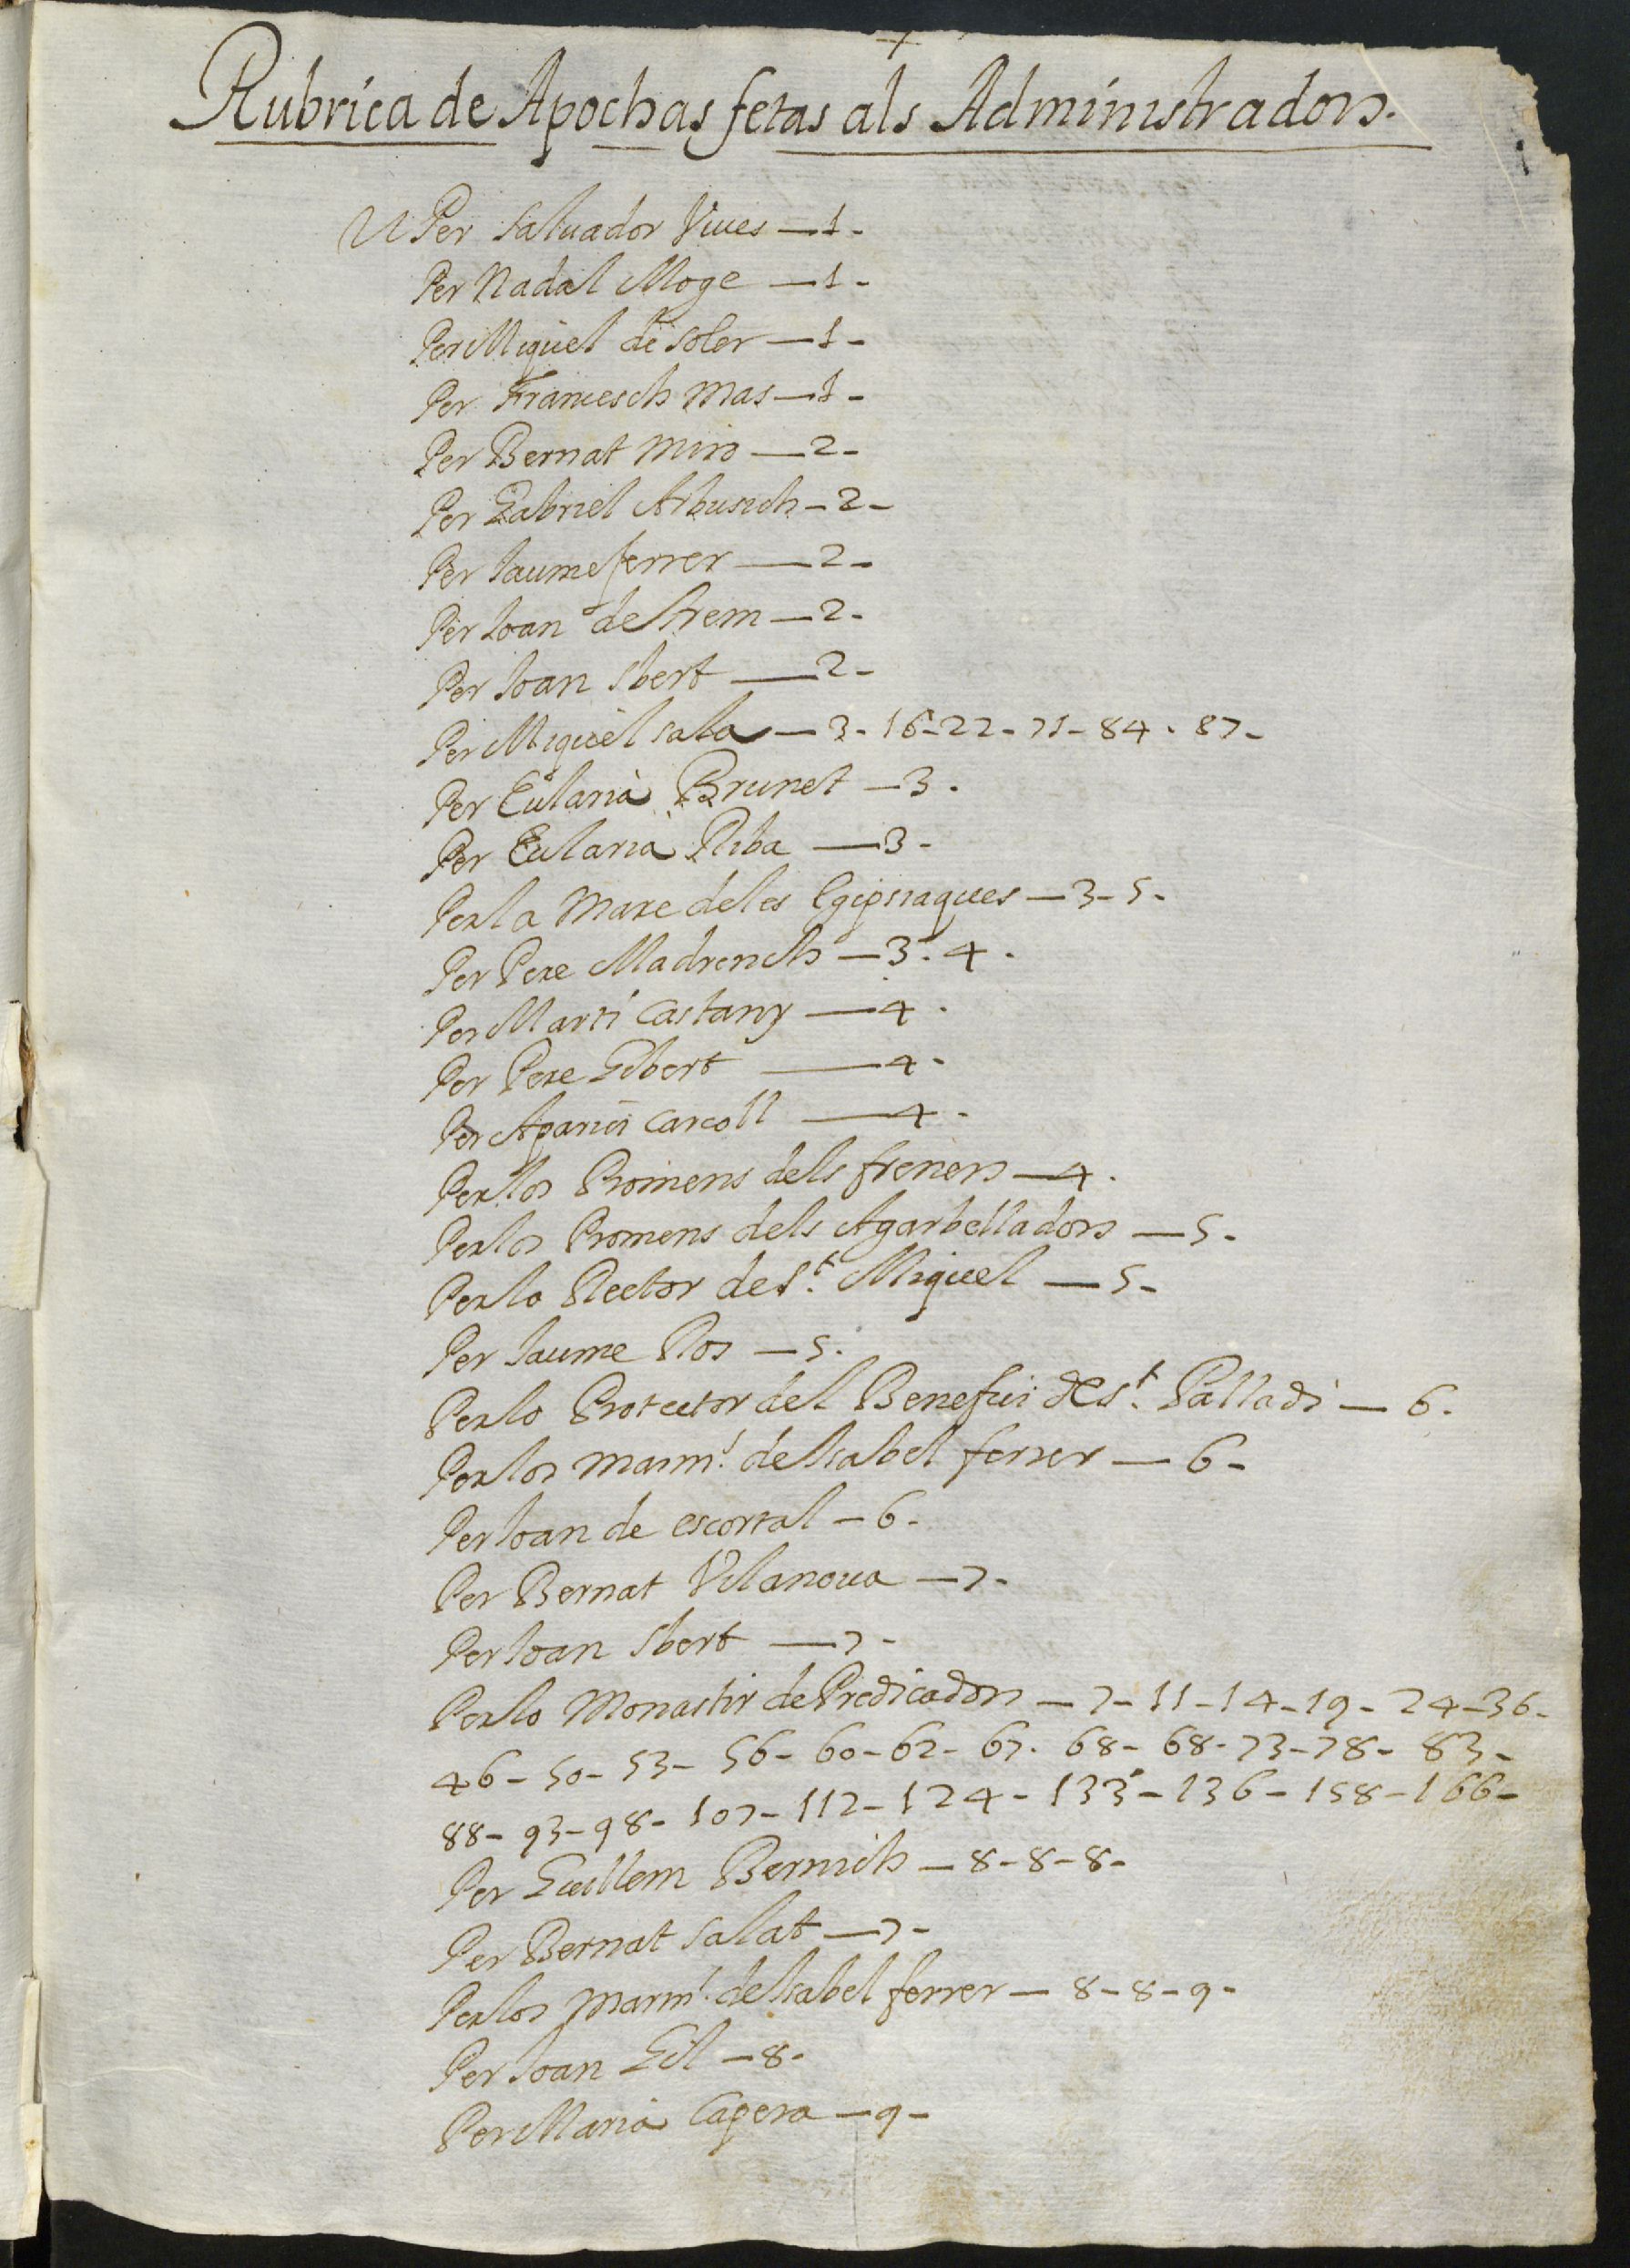 Rubrica de Apochas fetas als Administradors.
Per Saluador Viues — 1 -
Per Nadal Moge — 1 -
Per Miquel de Soler — 1 -
Per Francesch Mas — 1 -
Per Bernat Miro — 2 -
Per Gabriel Arbusich - 2 -
Per Jaume ferrer — 2 -
Per Joan destrem — 2 -
Per Joan Sbert — 2 -
Per Miquel Sala — 3 - 16 - 22 - 71 - 84 - 87 -
Per Eularia Brunet — 3 -
Per Eularia Riba — 3 -
Per la Mare de les Egipsiaques — 3 - 5 -
Per Pere Madrench — 3 - 4 -
Per Marti Castany — 4 -
Per Pere Gibert — 4 -
Per Aparici Carcoll — 4 -
Per los Promens dels freners — 4 -
Per los Promens dels Agarbelladors — 5 -
Per lo Rector de St. Miquel — 5 -
Per Jaume Ros — 5 -
Per lo Protector del Benefici de St. Palladi — 6 -
Per los Marm.s de Isabel ferrer — 6 -
Per Joan de escortal - 6 -
Per Bernat Vilanoua — 7 -
Per Joan Sbert — 7 -
Per lo Monastir de Predicadors — 7 - 11 - 14 - 19 - 24 - 36 -
46 - 50 - 53 - 56 - 60 - 62 - 67 - 68 - 68 - 73 - 78 - 83 -
88 - 93 - 98 - 107 - 112 - 124 - 133 - 136 - 158 - 166 -
Per Guillem Bernich — 8 - 8 - 8 -
Per Bernat Salat — 7 -
Per los Marm.s de Isabel ferrer — 8 - 8 - 9 -
Per Joan Gil — 8 -
Per Maria Capera — 9 -